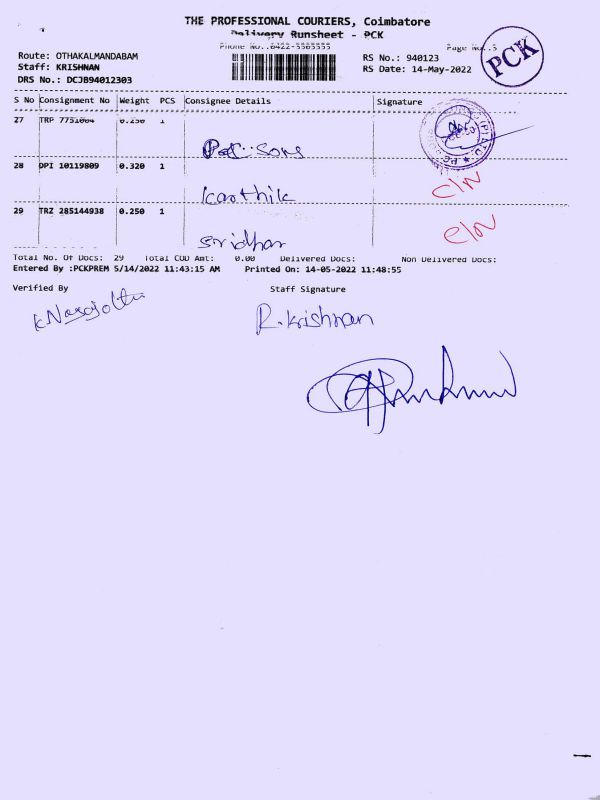 THE PROFESSIONAL COURIERS, Coimbatore
Delivery Runsheet - PCK
Phone No.:0422-5585555 Page No.:5
PCK
Route: OTHAKALMANDABAM RS No.: 940123
Staff: KRISHNAN RS Date: 14-May-2022
DRS No.: DCJB94012303
S No Consignment No Weight PCS Consignee Details Signature
27 TRP 7751004 0.250 1
Sons
28 DPI 10119809 0.320 1
Karthik c/n
29 TRZ 285144938 0.250 1
Sridhar c/n
Total No. Of Docs: 29 Total COD Amt: 0.00 Delivered Docs: Non Delivered Docs:
Entered By :PCKPREM 5/14/2022 11:43:15 AM Printed On: 14-05-2022 11:48:55
Verified By Staff Signature
R.Krishnan